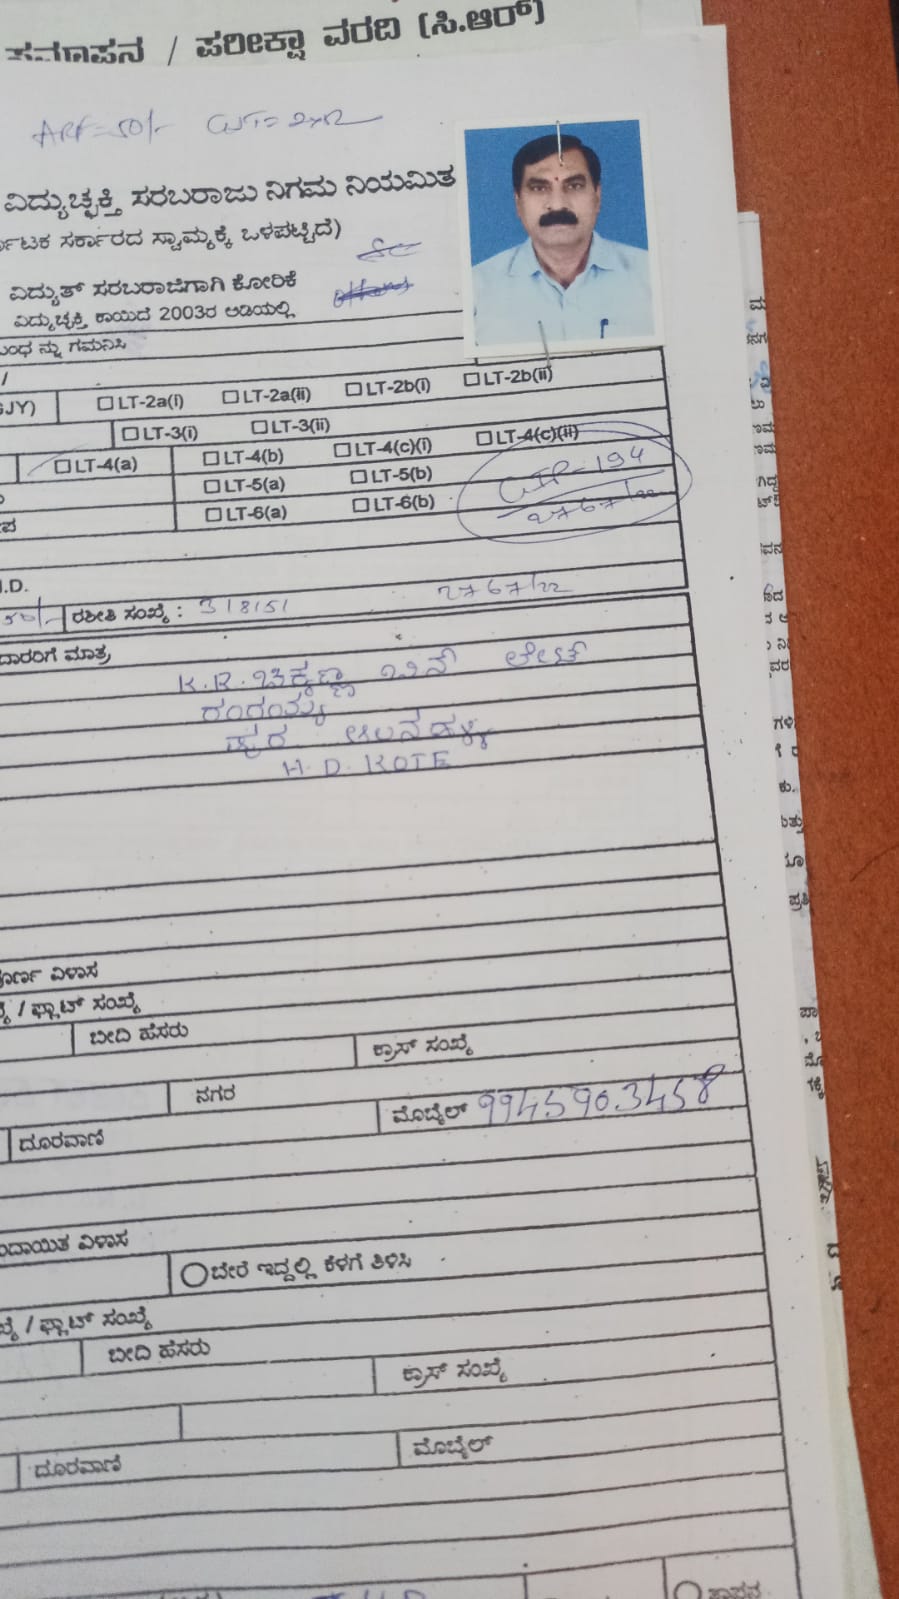 ಸಮಾಪನ / ಪರೀಕ್ಷಾ ವರದಿ (ಸಿ.ಆರ್)
ARF=50/-
ವಿದ್ಯುಚ್ಛಕ್ತಿ ಸರಬರಾಜು ನಿಗಮ ನಿಯಮಿತ
ರ್ನಾಟಕ ಸರ್ಕಾರದ ಸ್ವಾಮ್ಯಕ್ಕೆ ಒಳಪಟ್ಟಿದೆ)
ವಿದ್ಯುತ್ ಸರಬರಾಜಿಗಾಗಿ ಕೋರಿಕೆ
ವಿದ್ಯುಚ್ಛಕ್ತಿ ಕಾಯಿದೆ 2003ರ ಅಡಿಯಲ್ಲಿ
ಬಂಧ ನ್ನು ಗಮನಿಸಿ
/
GJY) ☐LT-2a(i) ☐LT-2a(ii) ☐LT-2b(i) ☐LT-2b(ii)
☐LT-3(i) ☐LT-3(ii)
☐LT-4(a) ☐LT-4(b) ☐LT-4(c)(i) ☐LT-4(c)(ii)
☐LT-5(a) ☐LT-5(b)
☐LT-6(a) ☐LT-6(b)
194
27/6/7/22
.D.
50/- ರಶೀತಿ ಸಂಖ್ಯೆ : 318151 27 6 7/22
ದಾರರಿಗೆ ಮಾತ್ರ
K.R.ಚಿಕ್ಕಣ್ಣ ಬಿನ್ ಲೇಟ್
ರಂಗಯ್ಯ
H.D. KOTE
ಪೂರ್ಣ ವಿಳಾಸ
ಖ್ಯೆ / ಫ್ಲಾಟ್ ಸಂಖ್ಯೆ
ಬೀದಿ ಹೆಸರು
ಕ್ರಾಸ್ ಸಂಖ್ಯೆ
ನಗರ
ದೂರವಾಣಿ
ಮೊಬೈಲ್ 9945903458
ಂದಾಯಿತ ವಿಳಾಸ
◯ಬೇರೆ ಇದ್ದಲ್ಲಿ ಕೆಳಗೆ ತಿಳಿಸಿ
ಖ್ಯೆ / ಫ್ಲಾಟ್ ಸಂಖ್ಯೆ
ಬೀದಿ ಹೆಸರು
ಕ್ರಾಸ್ ಸಂಖ್ಯೆ
ದೂರವಾಣಿ
ಮೊಬೈಲ್